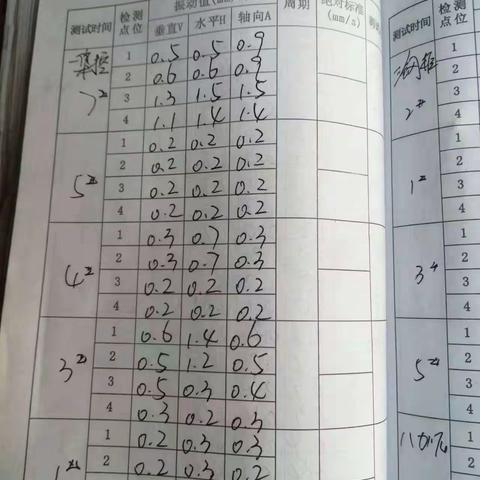 振动值(mm/
测试时间 检测点位 垂直V 水平H 轴向A 周期 绝对标准(mm/s) 测试时间
集控 1 0.5 0.5 0.9 1
2 0.6 0.6 0.9 2
7# 3 1.3 1.5 1.5 2# 3
4 1.1 1.4 1.4 4
1 0.2 0.2 0.2 1
2 0.2 0.2 0.2 2
5# 3 0.2 0.2 0.2 1# 3
4 0.2 0.2 0.2 4
1 0.3 0.7 0.3 1
2 0.3 0.7 0.3 2
4# 3 0.2 0.2 0.2 3# 3
4 0.2 0.2 0.2 4
1 0.6 1.4 0.6 1
2 0.5 1.2 0.5 2
3# 3 0.5 0.3 0.4 5# 3
4 0.3 0.2 0.3 4
1 0.2 0.3 0.3 1
1# 2 0.2 0.3 0.2 2